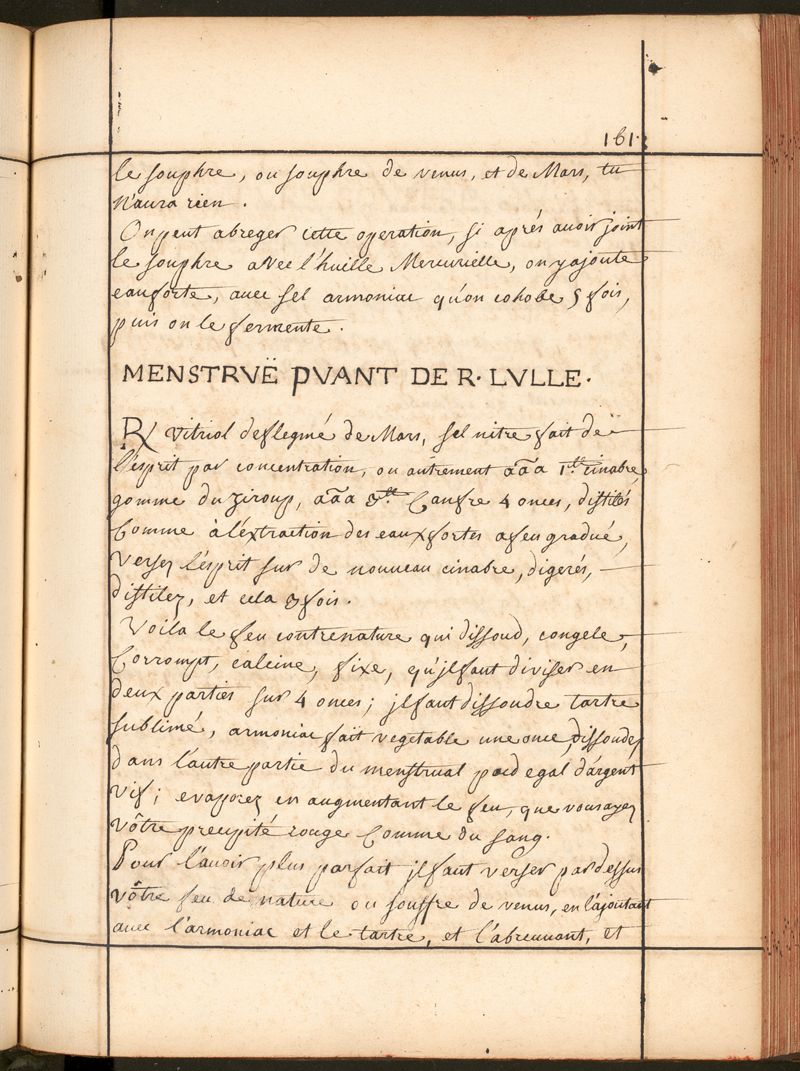 161.
le souphre, ou souphre de venus, et de Mars, tu
n'aura rien.
On peut abreger cette operation, si aprés avoir joint
le souphre avec l'huille Mercurielle, on y ajoute
eau forte, avec sel armoniac qu'on cohobe 5 fois,
puis on le fermente.
MENSTRVË PVANT DE R. LVLLE.
℞ Vitriol deflegmé de Mars, sel nitre fait de
l'esprit par concentration, ou autrement aãa 1.tt cinabre
gomme du ziroup, aãa 3.tt Canfre 4 onces, distilés
Comme à l'éxtraction des eaux fortes a feu gradué,
Versez l'esprit sur de nouveau cinabre, digerés,
distilez, et cela 3 fois.
Voila le feu contre nature qui dissoud, congele,
Corrompt, calcine, fixe, qu'jl faut diviser en
deux parties sur 4 onces; jl faut dissoudre tartre
sublimé, armoniac fait vegetable une once, dissoudez
dans l'autre partie du menstrual poid egal d'argent
vif; evaporez en augmentant le feu, que vous ayez
vôtre precipité rouge Comme du sang.
Pour l'avoir plus parfait jl faut verser par dessus
vôtre feu de nature ou souffre de venus, en l'ajoutant
avec l'armoniac et le tartre, et l'abreuvant, et